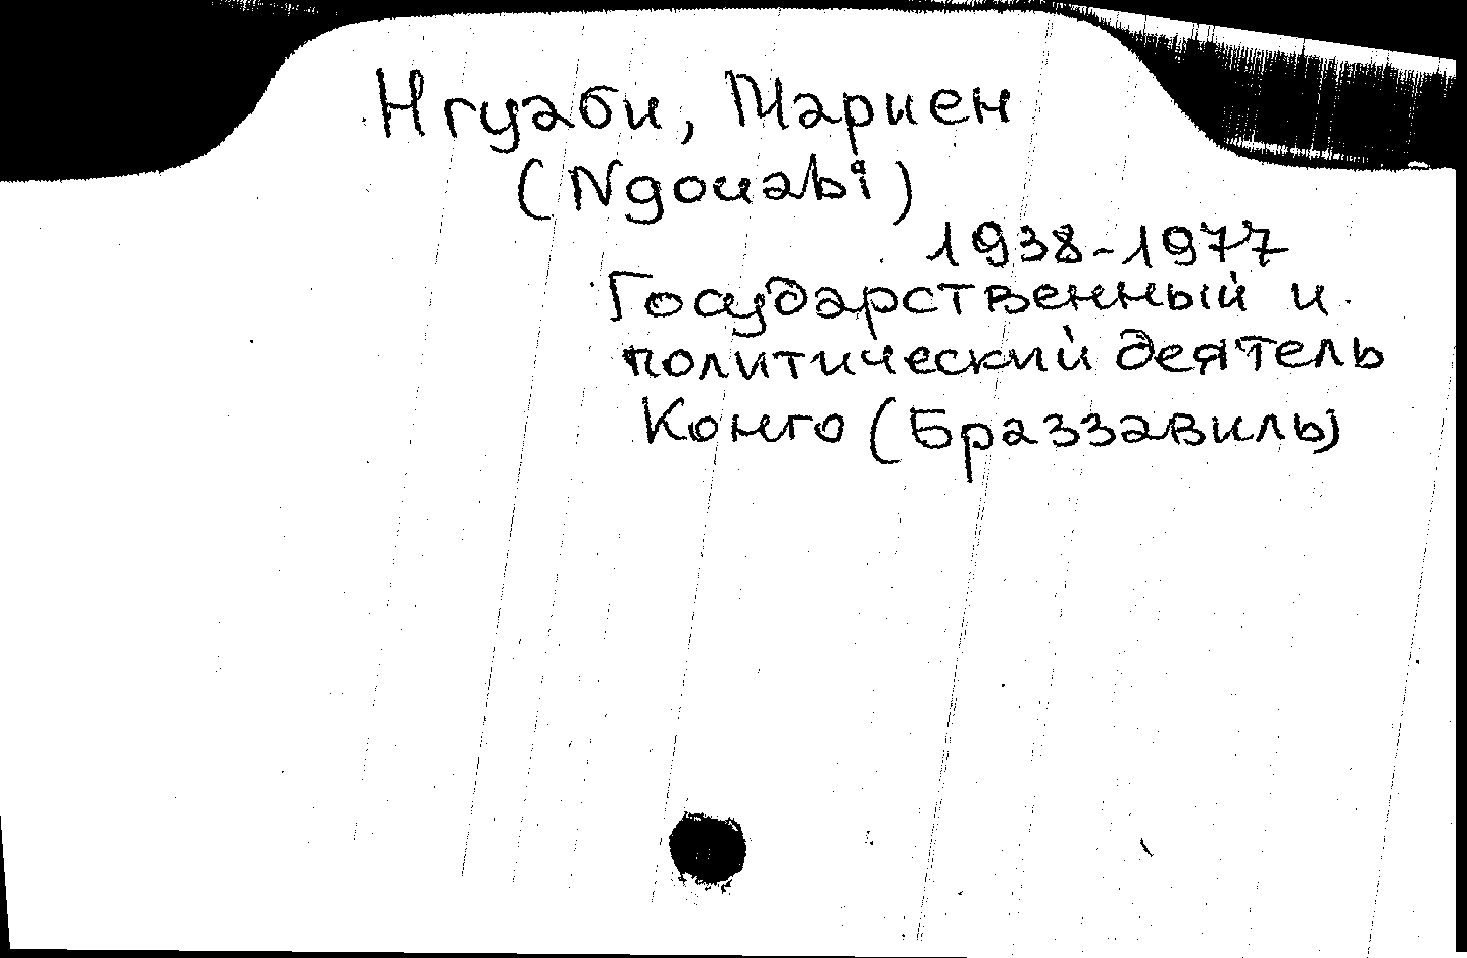 Нгуаби, Мариен
(Ngouabi)
1938-1977
Государственный и
политический деятель
Конго (Браззавиль)